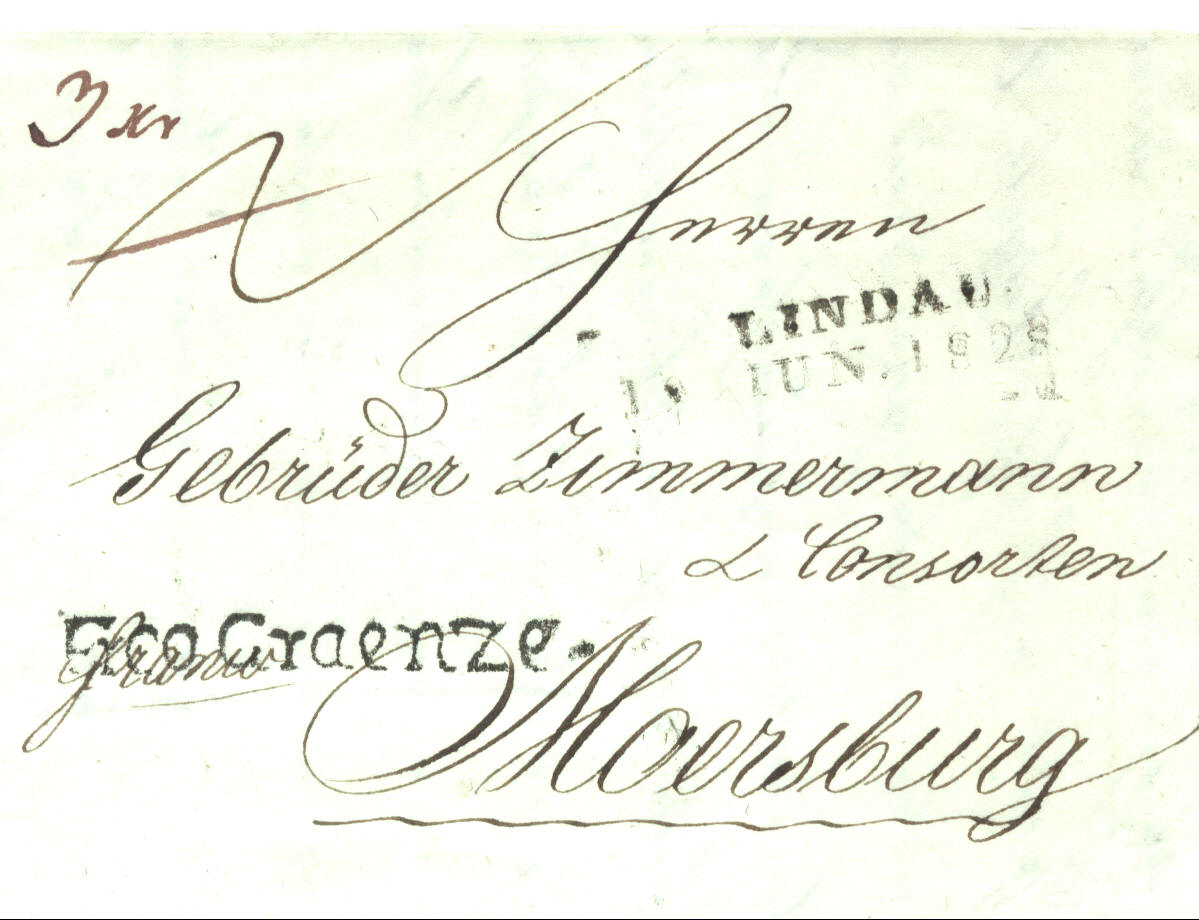 3 Xr
Herren
LINDAU
19 JUN. 1828
Gebrüder Zimmermann
& Consorten
Fco Graenze.
franco
Moersburg